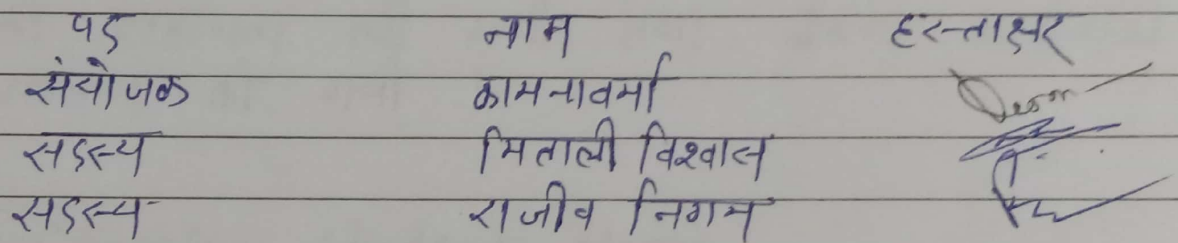 पद नाम हस्ताक्षर
संयोजक कामना वर्मा
सदस्य मिताली विश्वास
सदस्य राजीव निगम